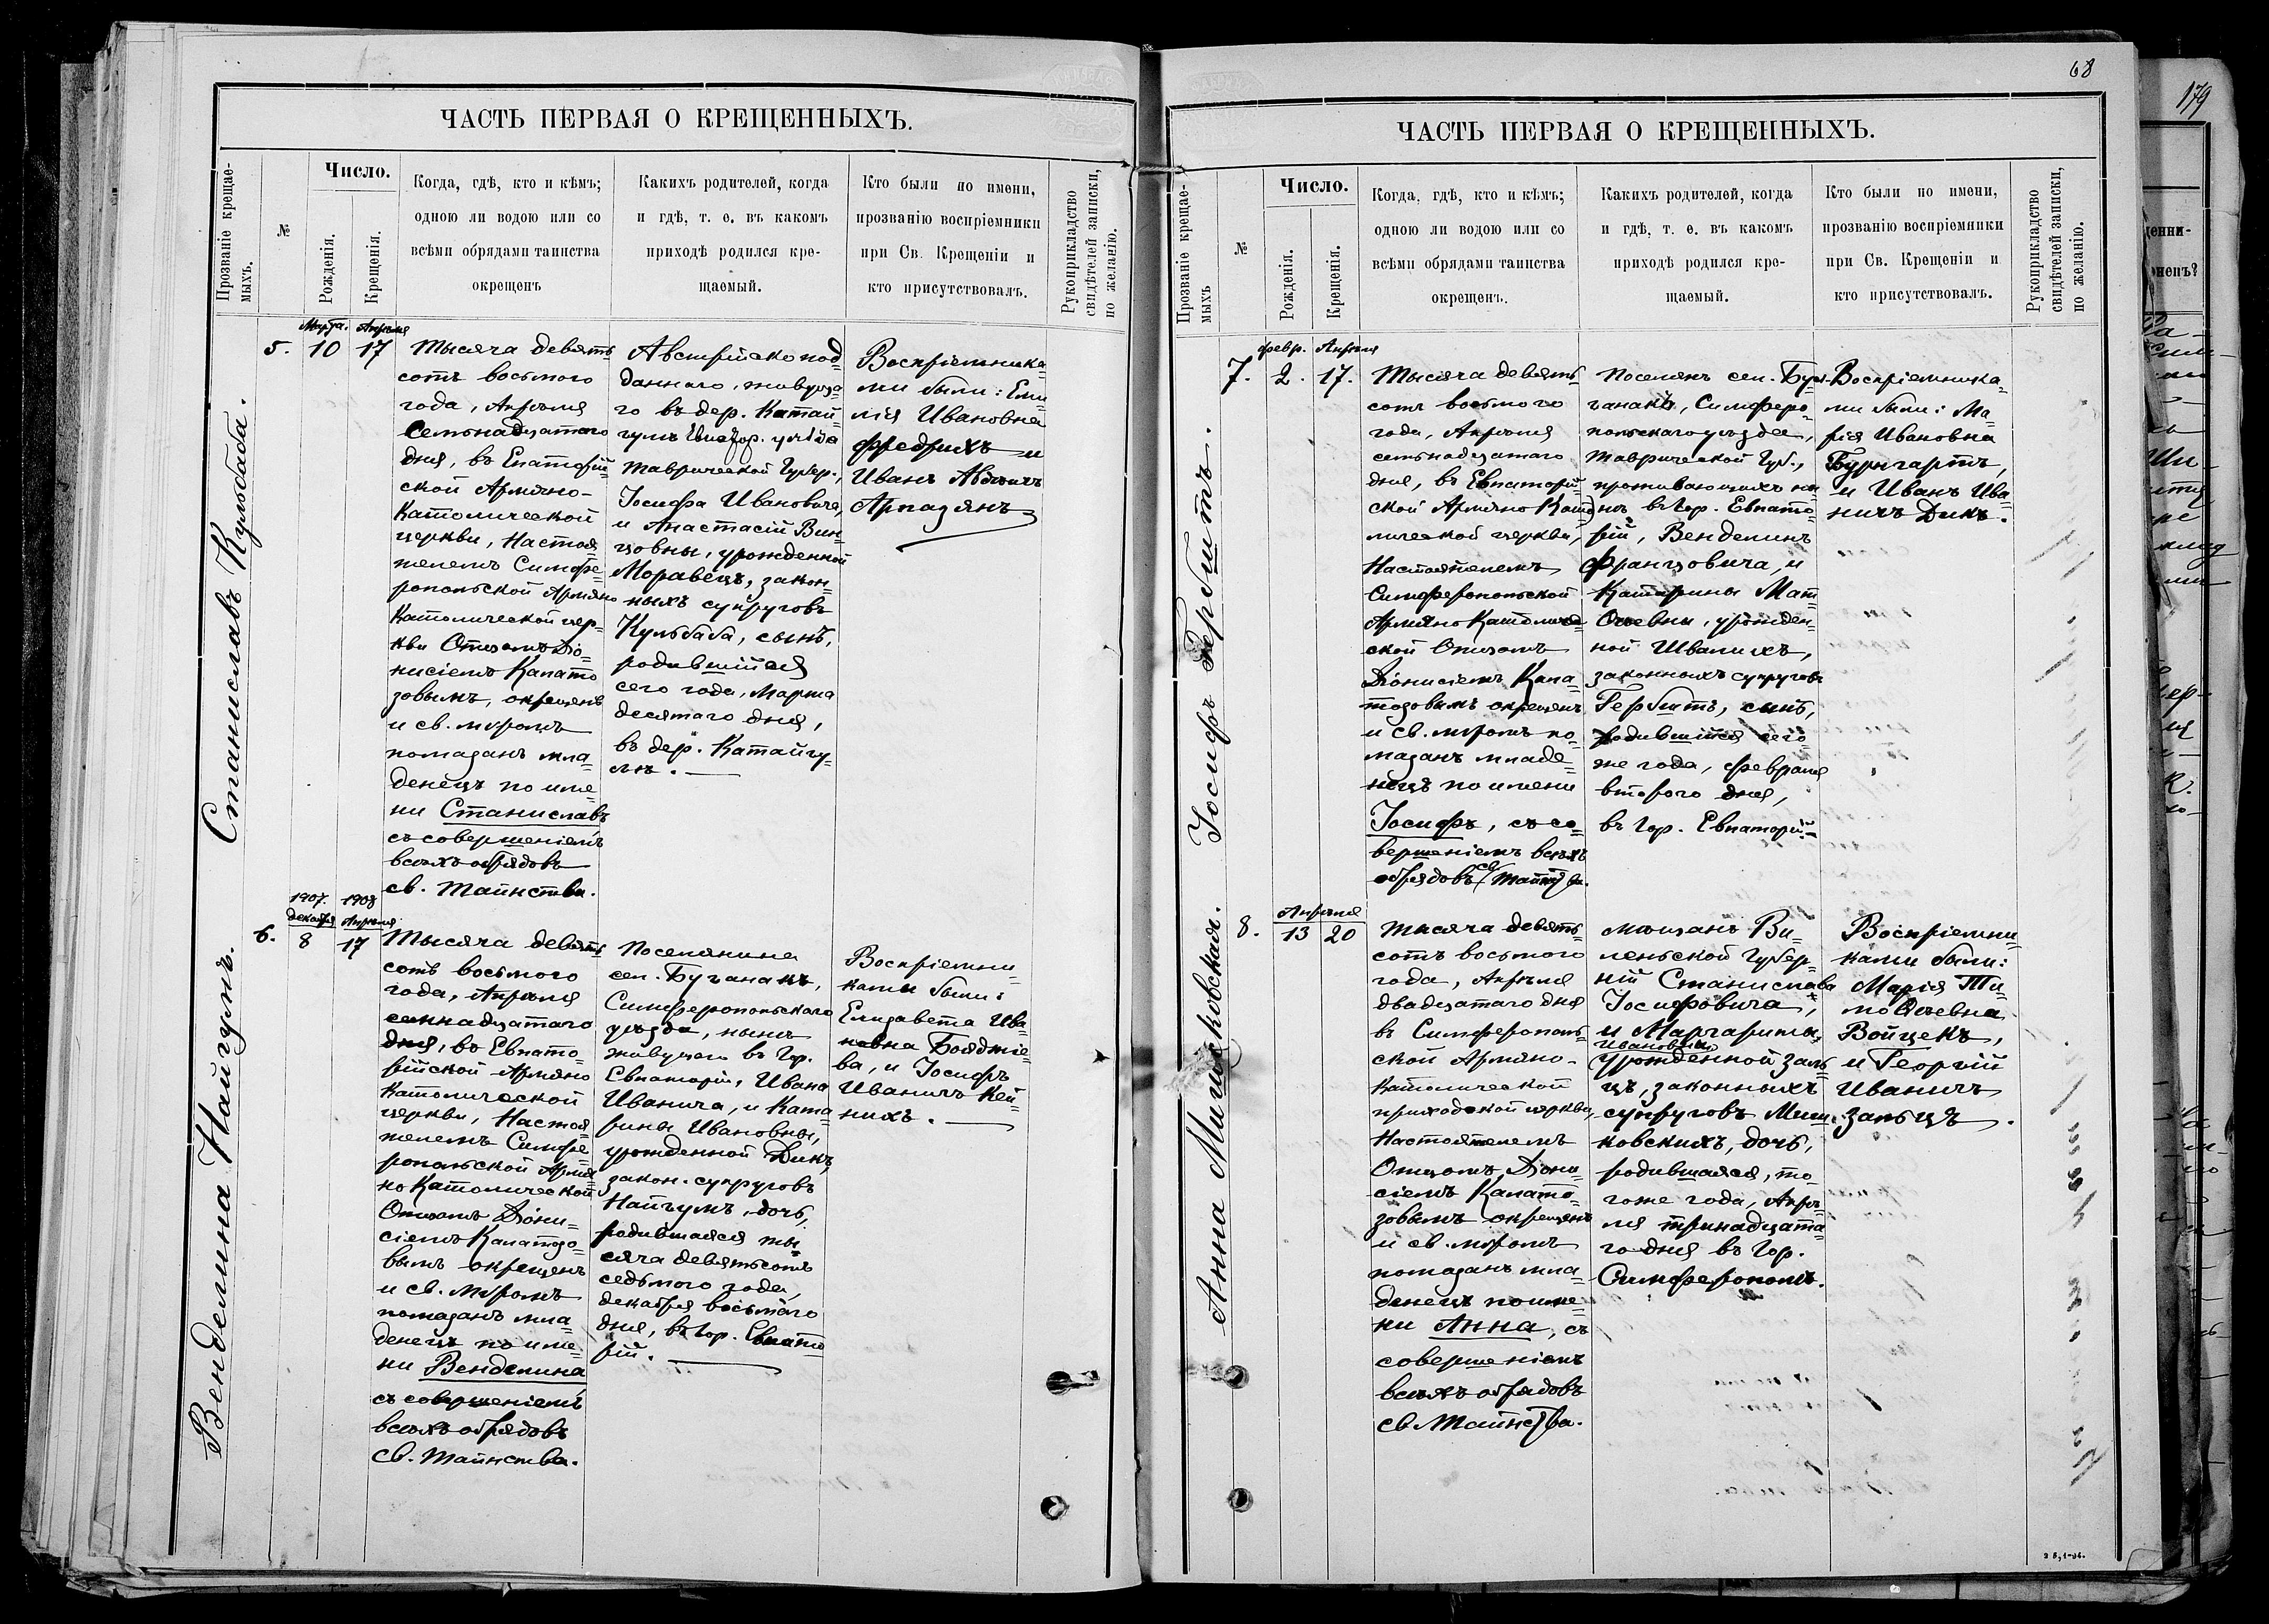 ЧАСТЬ ПЕРВАЯ О КРЕЩЕННЫХЪ.
Прозваніе крещае-
мыхъ.
№
Число.
Рожденія.
Крещенія.
Когда, гдѣ, кто и кѣмъ;
одною ли водою или со
всѣми обрядами таинства
окрещенъ
Какихъ родителей, когда
и гдѣ, т. е. въ какомъ
приходѣ родился кре-
щаемый.
Кто были по имени,
прозванію воспріемники
при Св. Крещеніи и
кто присутствовалъ.
Рукоприкладство
свидѣтелей записки,
по желанію.
Станиславъ Кульбаба.
5.
Марта.
10
Апрѣля
17
Тысяча девять
сотъ восьмого
года, Апрѣля
Семьнадцатаго
дня, въ Евпаторій
ской Армяно-
Католической
церкви, Настоя
телемъ Симфе-
ропольской Армяно
Католической цер-
кви Отцомъ Діо-
нисіемъ Калато
зовымъ, окрещенъ
и св. мѵромъ
помазанъ мла-
денецъ по име-
ни Станиславъ
съ совершеніемъ
всѣхъ обрядовъ
св. Таинства.
Австрійско под
даннаго, живуща-
го въ дер. Катай
гулъ Евпатор. уѣзда
Таврической Губер.,
Іосифа Ивановича,
и Анастасіи Вин-
цовны, урожденной
Моравецъ, закон-
ныхъ супруговъ
Кульбаба, сынъ,
родившійся
сего года, Марта
десятаго дня,
въ дер. Катайгу-
лъ.
Воспріемника-
ми были: Еми-
лія Ивановна
Фредрихъ и
Иванъ
6.
1907.
декабря
8
1908
Апрѣля
17
Венделина Найгумъ.
Тысяча девять
сотъ восьмого
года, Апрѣля
семнадцатаго
дня, въ Евпато-
рійской Армяно
Католической
церкви, Настоя
телемъ Симфе-
ропольской Армя-
но Католической
Отцомъ Діони-
сіемъ Калатозо-
вымъ окрещенъ
и св. Мѵромъ
помазанъ мла-
денецъ по име-
ни Венделина
съ совершеніемъ
всѣхъ обрядовъ
св. Таинства.
Поселянина
сел. Бугана къ,
Симферопольскаго
уѣзда, нынѣ
живущаго въ Гор.
Евпаторіи, Ивана
Иванича, и Ката
рины Ивановны,
урожденной Дикъ
закон. супруговъ
Найгумъ, дочь,
родившаяся ты-
сяча девятьсотъ
седьмого года,
декабря восьмаго
дня, въ Гор. Евпато
ріи.
Воспріемни-
ками были:
Елизавета Ива-
новна Бояджіе-
ва, и Іосифъ
Иваничъ Кей-
нихъ.
68
ЧАСТЬ ПЕРВАЯ О КРЕЩЕННЫХЪ.
Прозваніе крещае-
мыхъ
№
Число.
Рожденія.
Крещенія.
Когда, гдѣ, кто и кѣмъ;
одною ли водою или со
всѣми обрядами таинства
окрещенъ.
Какихъ родителей, когда
и гдѣ, т. е. въ какомъ
приходѣ родился кре-
щаемый.
Кто были по имени,
прозванію воспріемники
при Св. Крещеніи и
кто присутствовалъ.
Рукоприкладство
свидѣтелей записки,
по желанію.
Іосифъ Гербитъ.
7.
Февр.
2.
Апрѣля
17.
Тысяча девять-
сотъ восьмого
года, Апрѣля
семьнадцатаго
дня, въ Евпаторій-
ской Армяно Като
лической церкви,
Настоятелемъ
Симферопольской
Армяно Католиче-
ской Отцомъ
Діонисіемъ Кала-
тозовымъ окрещенъ
и св. мѵромъ по-
мазанъ младе-
нецъ по имени
Іосифъ, съ со-
вершеніемъ всѣхъ
обрядовъ св. Таинства.
Поселянъ сел. Бул-
ганакъ, Симферо-
польскаго уѣзда,
Таврической Губ.,
проживающихъ ны-
нѣ въ Гор. Евпато-
ріи, Венделинъ
Францовича, и
Катарины Мат
ѳеевны, урожден-
ной Иванихъ,
законныхъ супруговъ
Гербитъ, сынъ,
родившійся сего-
же года, февраля
второго дня,
въ Гор. Евпаторіи.
Воспріемника-
ми были: Ма-
рія Ивановна
Бумгартъ,
и Иванъ Ива-
ничъ Дикъ.
Анна Мишковская.
8.
Апрѣля
13
20
Тысяча девять-
сотъ восьмого
года, Апрѣля
двадцатаго дня
въ Симферополь-
ской Армяно-
Католической
приходской церкви,
Настоятелемъ
Отцомъ Діони-
сіемъ Калато-
зовымъ окрещенъ
и св. мѵромъ
помазанъ мла-
денецъ по име-
ни Анна, съ
совершеніемъ
всѣхъ обрядовъ
св Таинства.
Мѣщанъ Ви-
ленской Губер-
ніи Станислава
Іосифовича,
и Маргариты
Ивановны,
урожденной Заль
цъ, законныхъ
супруговъ Миш-
ковскихъ, дочь,
родившаяся, то-
гоже года, Апрѣ-
ля тринадцата-
го дня въ Гор.
Симферополѣ.
Воспріемни-
ками были:
Марія Ти-
моѳеевна
Войцекъ,
и Георгій
Иваничъ
Зальцъ.
179